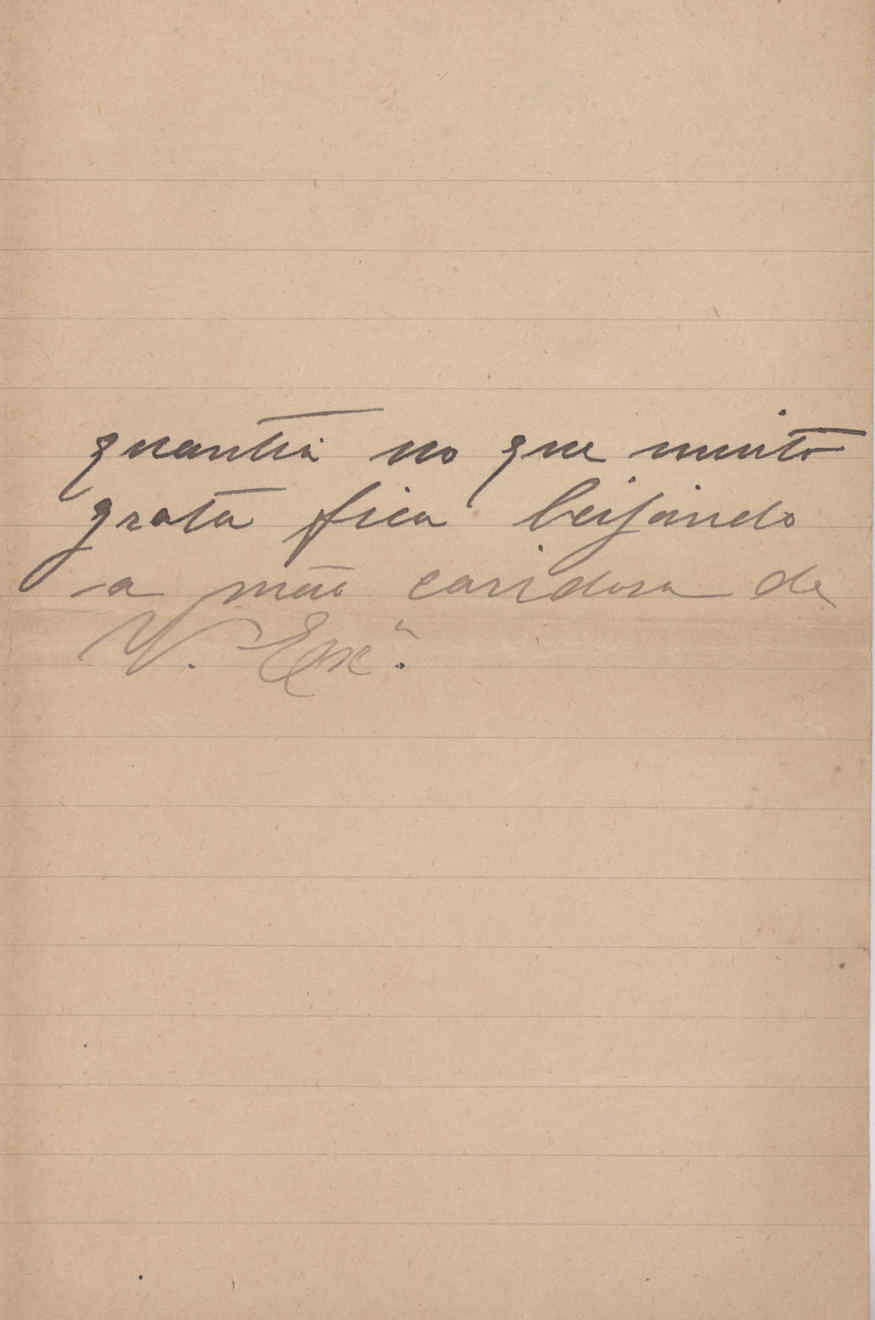 quantia no que muito
grata fica beijando
a mão caridosa de
V. Exª.